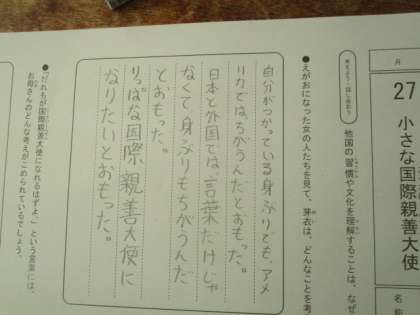 月
27 小さな国際親善大使
名前
考えよう・話し合おう
他国の習慣や文化を理解することは、なぜ
●えがおになった女の人たちを見て、芽衣は、どんなことを考
自分がつかっている身ぶりでも、アメ
リカでは、ちがうんだとおもった。
日本と外国では、言葉だけじゃ
なくて身ぶりもちがうんだ
とおもった。
りっぱな国際親善大使に
なりたいとおもった。
●「だれもが国際親善大使になれるはずよ。」という言葉には、
お母さんのどんな考えがこめられているでしょう。